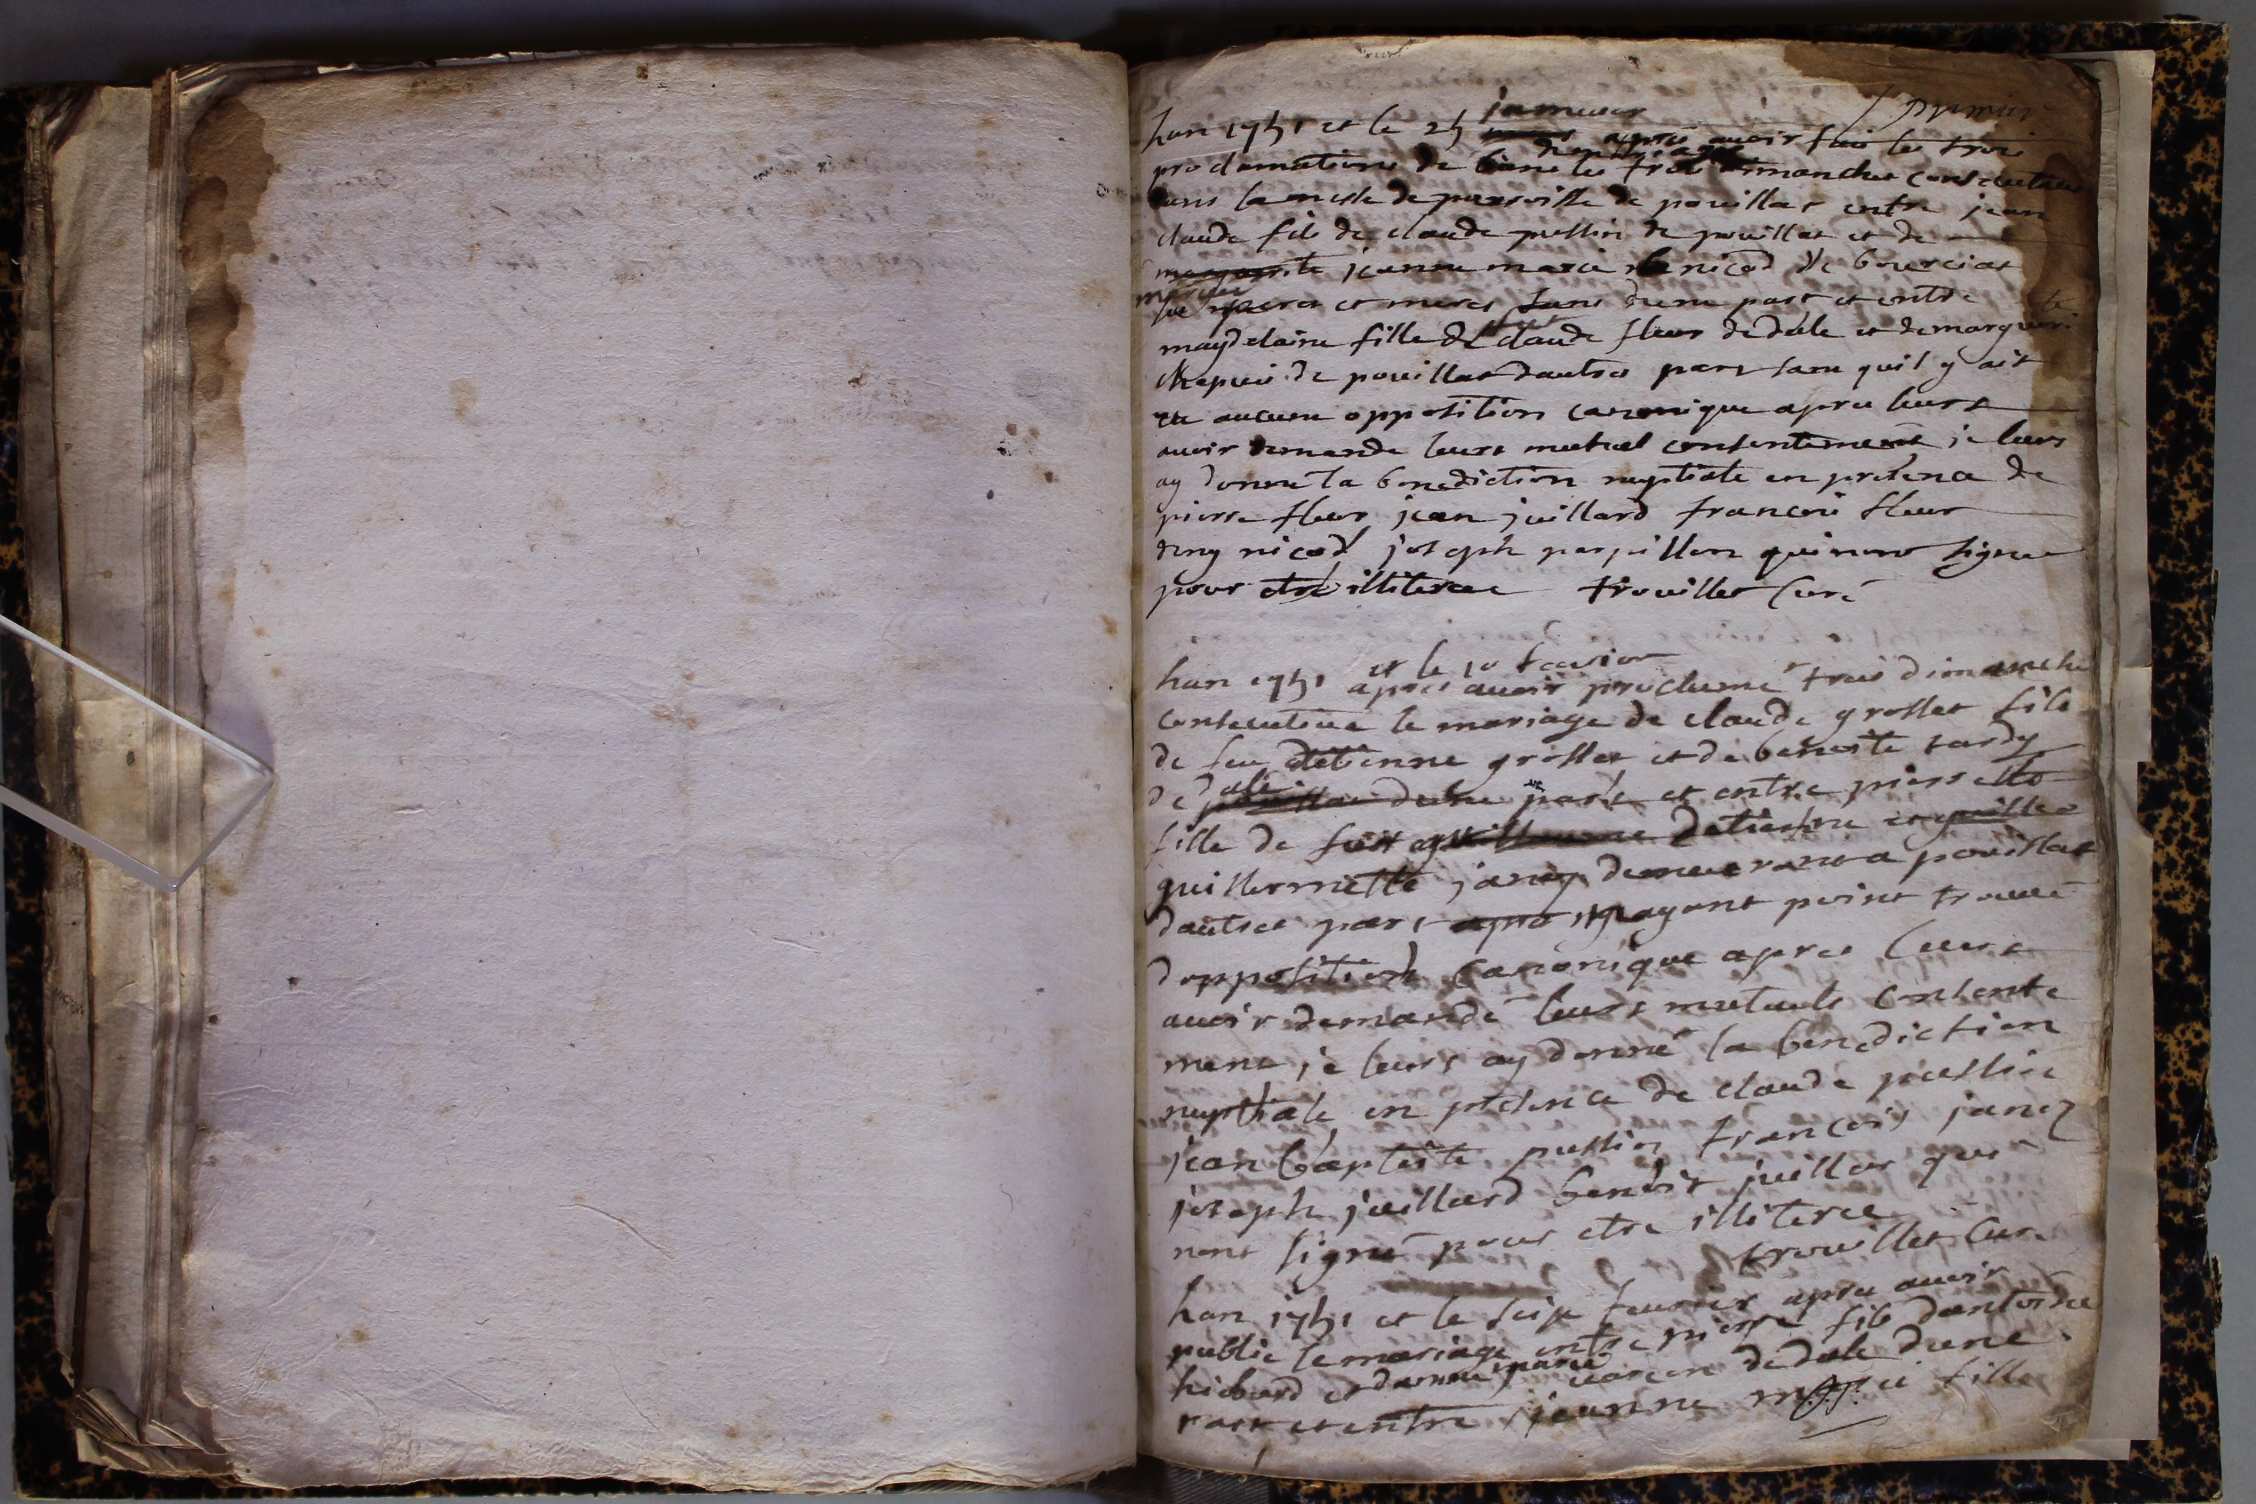 premier
januier
lan 1751 et le 25 apres auoir fait les trois
proclamations de bans les trois dimanches consecutius
dans la messe de paroisse de pouillat entre jean
claude fils de claude pussin de pouillat et de
margurite jeanne maria nicod de bourciat
mariee
peres et meres dune part et entre
magdelaine fille de claude fleur de dale et de marguerite
chapuis de pouillat dautres part sans quil y ait
eu aucune opposition canonique apres leurs
auoir demande leurs mutuel consentement je leurs
ay donné la benediction nuptiale en presence de
pierre fleur jean juillard francois fleur
deny nicod joseph parpillon qui nont signee
pour etre illiteree trouillet Curé
et le 10 feurier
lan 1751 apres auoir proclamé trois dimanche
consecutiue le mariage de claude grosset fils
de feu etienne grosset et de benoite tardy
dale
de pouillat dune part et entre pierrette
fille de fut guillaume detienne et guille
guillermette janez demeurant a pouillat
dautres part apres nayant point trouué
doppositions canonique apres leurs
auoir demandé leurs mutuels consente
ment je leurs ay donné la benediction
nuptiale en presence de claude pussin
jean baptiste pussin francois janez
joseph juillard benoit juillar qui
nont signé pour etre illiteree
trouillet Curé
lan 1751 et le seize feurier apres auoir
publie le mariage entre pierre fils dantoine
hichard et danne marie de dale dune
part et entre jeanne marie fille